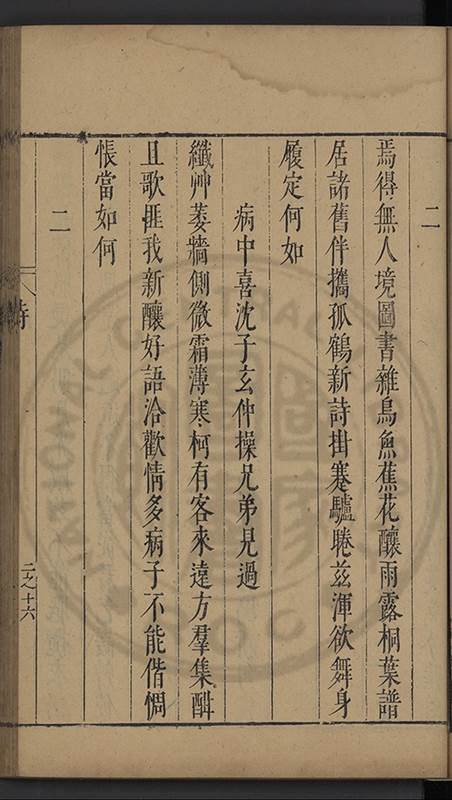 二
焉得無人境圖書雜鳥魚蕉花釀雨露桐葉譜
居諸舊伴攜孤鶴新詩掛蹇驢睠茲渾欲舞身
履定何如
病中喜沈子玄仲操兄弟見過
纖艸萎牆側微霜薄寒柯有客來遠方羣集酣
且歌匪我新釀好語洽歡情多病子不能偕惆
悵當如何
二
詩
二之十六